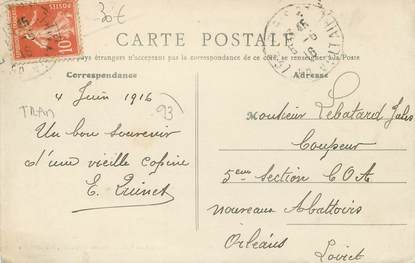 30€
POSTES
10
CARTE POSTALE
pays étrangers n'acceptent pas la correspondance de ce côté, se renseigner à la Poste
Correspondance
Adresse
4 Juin 1916
93
TRAM
Un bon souvenir
d'une vieille copine
E. Quinet
Monsieur Lebatard Jules
Coupeur
5eme Section COA
nouveaux Abattoirs
Orléans
Loiret